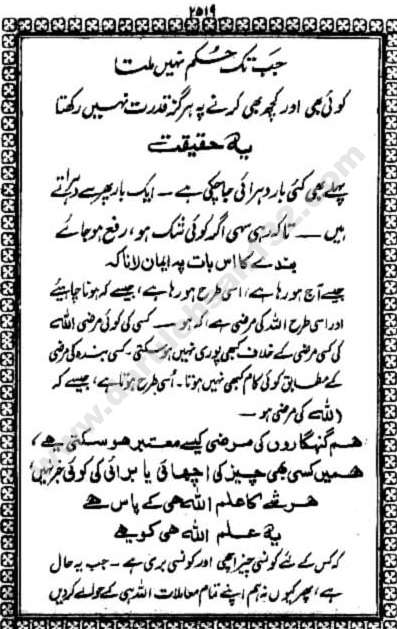 ۲۵۱۹
جب تک حکم نہیں ملتا
کوئی بھی اور کچھ بھی کرنے پہ ہرگز قدرت نہیں رکھتا
یہ حقیقت
پہلے بھی کئی بار دہرائی جا چکی ہے ـ ایک بار پھر سے دہراتے
ہیں ـــ تاکہ رہی سہی اگر کوئی شک ہو، رفع ہو جائے
بندے کا اس بات پہ ایمان لانا کہ
جیسے آج ہو رہا ہے، اسی طرح ہو رہا ہے، جیسے کہ ہونا چاہیئے
اور اسی طرح اللہ کی مرضی ہے، کہ ہو ـــ کسی کی کوئی مرضی اللہ
کی کسی مرضی کے خلاف کبھی پوری نہیں ہو سکتی ـ کسی بندہ کی مرضی
کے مطابق کوئی کام کبھی نہیں ہوتا ـ اُسی طرح ہوتا ہے، جیسے کہ
اللہ کی مرضی ہو ـــ
ہم گنہگاروں کی مرضی کیسے معتبر ہو سکتی ہے،
ہمیں کسی بھی چیز کی اچھائی یا برائی کی کوئی خبر نہیں،
ہر شے کا علم اللہ ہی کے پاس ہے
یہ علم اللہ ہی کو ہے
کہ کس کے لئے کونسی چیز اچھی اور کونسی بری ہے ـ جب یہ حال
ہے، پھر کیوں نہ ہم اپنے تمام معاملات اللہ ہی کے حوالے کر دیں